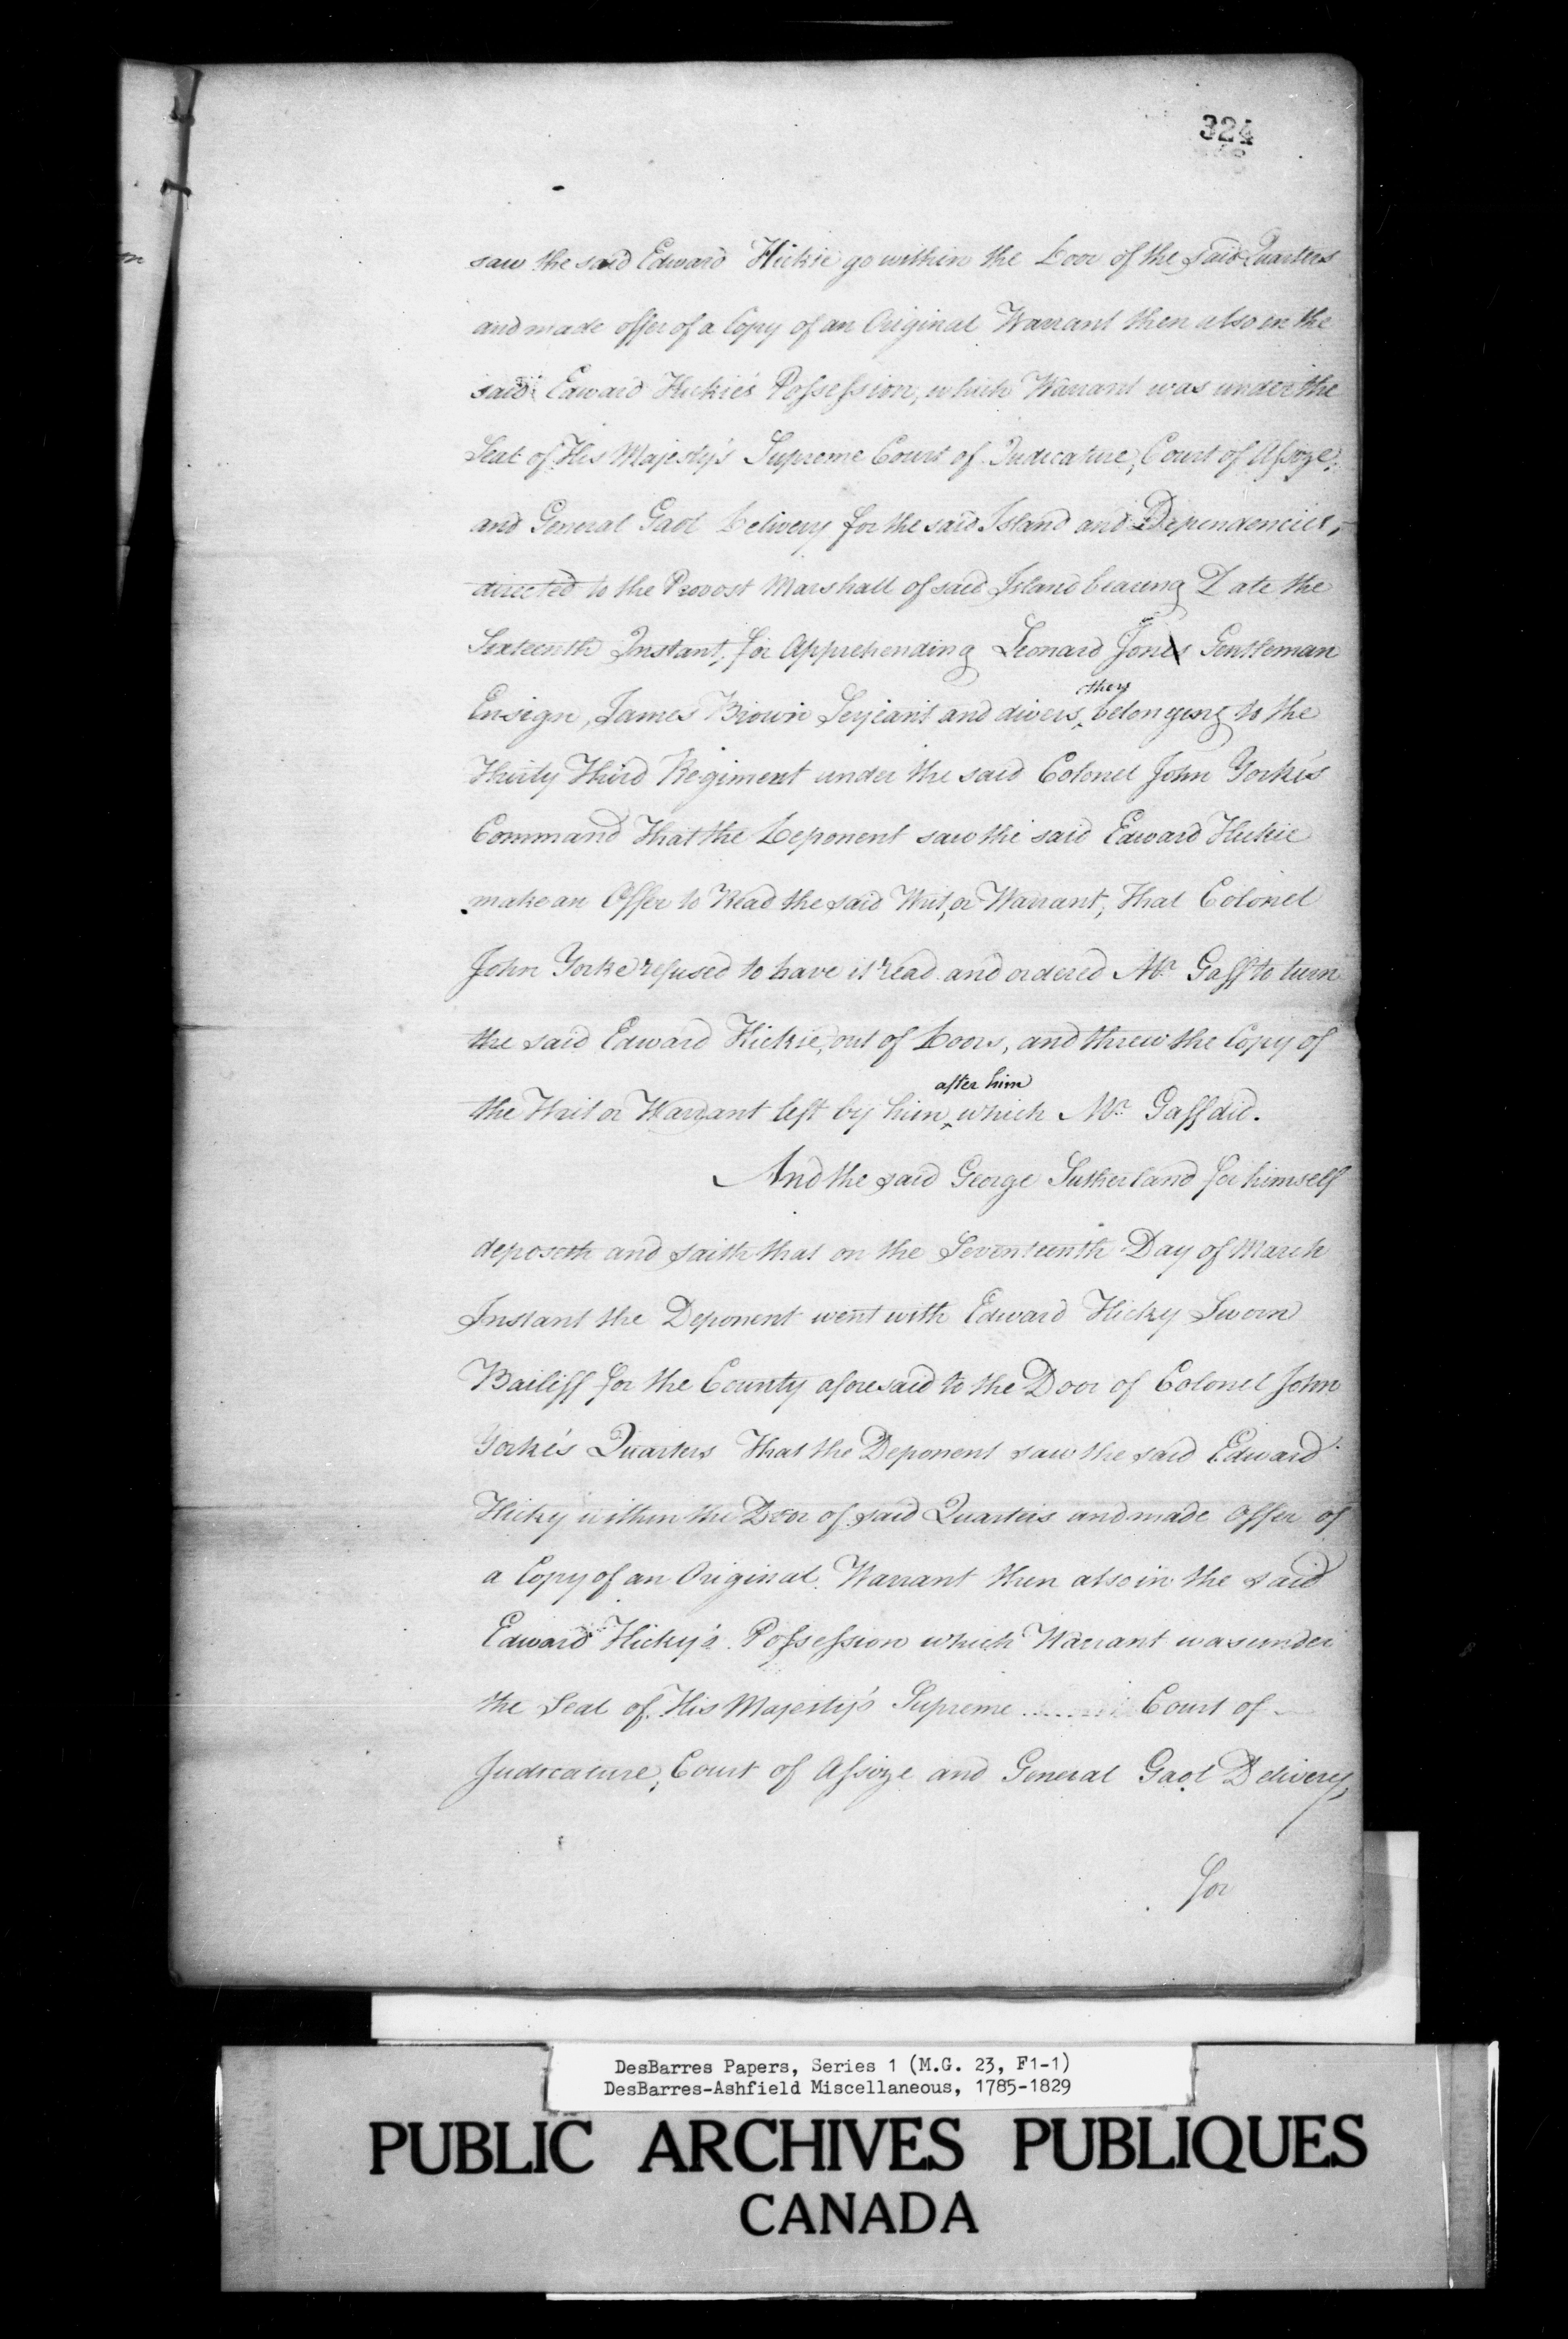 324
saw the said Edward Hickie go within the Door of the said Quarters
and made offer of a Copy of an Original Warrant then also in the
said Edward Hickie's Possession, which Warrant was under the
Seal of His Majesty's Supreme Court of Judicature, Court of Assize,
and General Gaol Delivery for the said Island and Dependencies,
directed to the Provost Marshall of said Island bearing Date the
Sixteenth Instant, for Apprehending Leonard Jones Gentleman
others
Ensign, James Brown Serjeant and divers ‸ belonging to the
Thirty Third Regiment under the said Colonel John Yorke's
Command That the Deponent saw the said Edward Hickie
make an Offer to Read the said Writ, or Warrant, That Colonel
John Yorke refused to have it read and ordered Mr. Gaff to turn
the said Edward Hickie, out of Doors, and threw the Copy of
after him
the Writ or Warrant left by him ‸ which Mr. Gaff did.
And the said George Sutherland for himself
deposeth and saith that on the Seventeenth Day of March
Instant the Deponent went with Edward Hicky Sworn
Bailiff for the County aforesaid to the Door of Colonel John
Yorke's Quarters That the Deponent saw the said Edward
Hicky within the Door of said Quarters and made Offer of
a Copy of an Original Warrant then also in the said
Edward Hicky's Possession which Warrant was under
the Seal of His Majesty's Supreme Court of
Judicature, Court of Assize and General Gaol Delivery,
for
DesBarres Papers, Series 1 (M.G. 23, F1-1)
DesBarres-Ashfield Miscellaneous, 1785-1829
PUBLIC ARCHIVES PUBLIQUES
CANADA